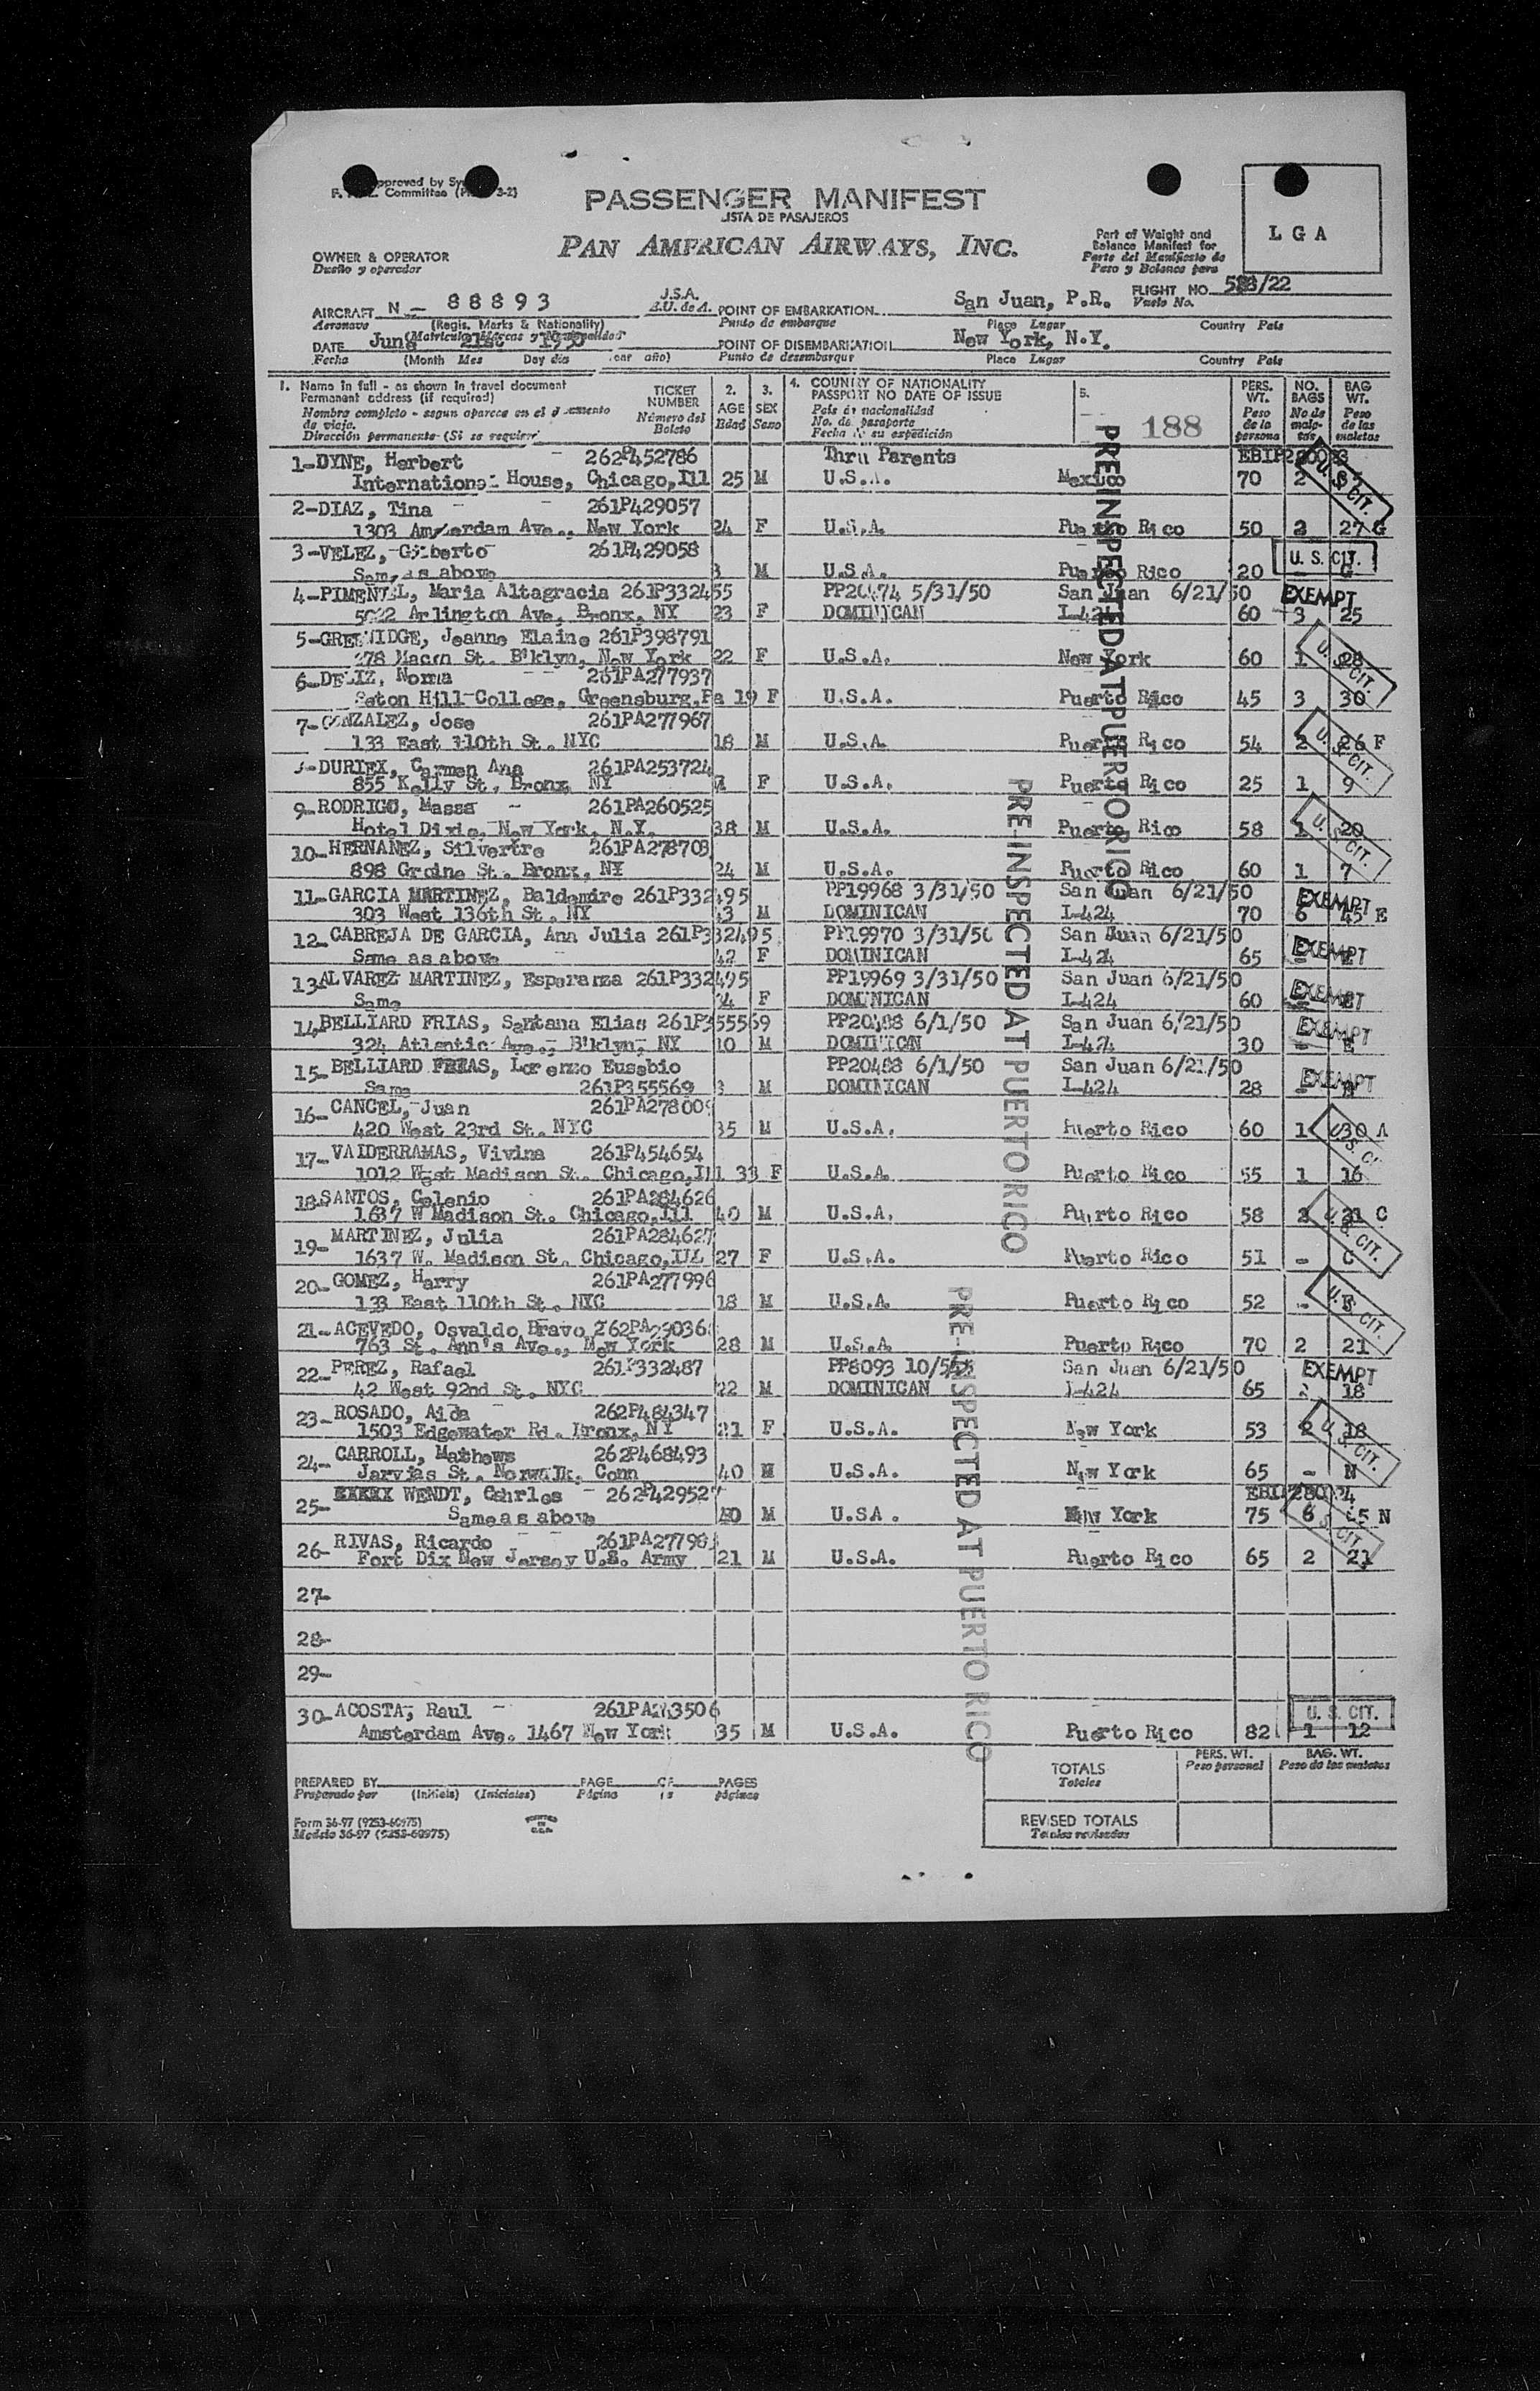 PASSENGER MANIFEST
LISTA DE PASAJEROS
PAN AMERICAN AIRWAYS, INC.
L G A
Part of Weight and
Balance Manifest for
Parte del Manifiesto de
Peso y Balance para
OWNER & OPERATOR
Dueño y operador
FLIGHT NO.
Vuelo No.
AIRCRAFT N - 88893
Aeronave (Regis. Marks & Nationality)
E.U. de A.
POINT OF EMBARKATION San Juan, P.R.
Punto de embarque Place Lugar Country Pais
DATE June 21st 1950
Fecha (Month Mes Day dia
POINT OF DISEMBARKATION New York, N.Y.
Punto de desembarque Place Lugar Country Pais
1. Name in full - as shown in travel document
Permanent address (if required)
Nombre completo - segun aparece en el
de viaje.
Dirección permanente (Si se
TICKET NUMBER Número del Boleto
2. AGE Edad
3. SEX Sexo
4. COUNTRY OF NATIONALITY
PASSPORT NO DATE OF ISSUE
Pais de nacionalidad
No. de pasaporte
Fecha de su expedición
5.
188
PERS. WT. Peso de la persona
NO. BAGS No de maletas
BAG WT. Peso de las maletas
1-DYNE, Herbert - 262P452786 Thru Parents
International House, Chicago,Ill 25 M U.S.A. Mexico 70 2
2-DIAZ, Tina - 261P429057
1303 Amsterdam Ave., New York 24 F U.S.A. Puerto Rico 50 2 27 G
3-VELEZ, Gilberto 261P429058
Same as above 3 M U.S.A. Puerto Rico 20 - G
4-PIMENTEL, Maria Altagracia 261P332455 PP20474 5/31/50 San Juan 6/21/50 EXEMPT
5022 Arlington Ave, Bronx, NY 23 F DOMINICAN I-424 60 3 25
5-GREENIDGE, Jeanne Elaine 261P398791
278 Macon St. B'klyn, New York 22 F U.S.A. New York 60 1 28
6-DELIZ, Norma 261PA277937
Seton Hill College, Greensburg,Pa 19 F U.S.A. Puerto Rico 45 3 30
7-GONZALEZ, Jose 261PA277967
133 East 110th St. NYC 18 M U.S.A. Puerto Rico 54 2 26 F
DURIEX, Carmen Ana 261PA253724
855 Kelly St, Bronx, NY F U.S.A. Puerto Rico 25 1 9
9-RODRIGO, Massa - 261PA260525
Hotel Dixie, New York, N.Y. 38 M U.S.A. Puerto Rico 58 1 20
10-HERNANEZ, Silvertre 261PA278703
898 St. Bronx, NY 24 M U.S.A. Puerto Rico 60 1 7
11-GARCIA MARTINEZ, Baldemire 261P332495 PP19968 3/31/50 San Juan 6/21/50 EXEMPT
303 West 136th St. NY 43 M DOMINICAN I-424 70 6 45 E
12-CABREJA DE GARCIA, Ana Julia 261P332495 PP19970 3/31/50 San Juan 6/21/50
Same as above 42 F DOMINICAN I-424 65 - EXEMPT
13ALVAREZ MARTINEZ, Esperanza 261P332495 PP19969 3/31/50 San Juan 6/21/50
Same F DOMINICAN I-424 60 - EXEMPT
14BELLIARD FRIAS, Santana Elias 261P355569 PP20488 6/1/50 San Juan 6/21/50 EXEMPT
324 Atlantic Ave., B'klyn, NY 10 M DOMINICAN I-424 30 - E
15-BELLIARD FRIAS, Lorenzo Eusebio PP20488 6/1/50 San Juan 6/21/50
Same 261P355569 M DOMINICAN I-424 28 - EXEMPT
16-CANCEL, Juan 261PA278009
420 West 23rd St. NYC 35 M U.S.A. Puerto Rico 60 1 30 A
17-VALDERRAMAS, Vivina 261PA454654
1012 West Madison St. Chicago,Ill 33 F U.S.A. Puerto Rico 55 1 16
18SANTOS, Celenio 261PA284626
1637 W Madison St. Chicago,Ill 40 M U.S.A. Puerto Rico 58 2 21 C
19-MARTINEZ, Julia 261PA284627
1637 W. Madison St. Chicago,Ill 27 F U.S.A. Puerto Rico 51 - C
20-GOMEZ, Harry 261PA277996
133 East 110th St. NYC 18 M U.S.A. Puerto Rico 52 -
21-ACEVEDO, Osvaldo Bravo
763 St. Ann's Ave., New York 28 M U.S.A. Puerto Rico 70 2 21
22-PEREZ, Rafael 261P332487 PP8093 San Juan 6/21/50 EXEMPT
42 West 92nd St. NYC 22 M DOMINICAN I-424 65 18
23-ROSADO, Aida 262P484347
1503 Edgewater Rd. Bronx, NY 21 F U.S.A. New York 53 2 18
24-CARROLL, Mathews 262P468493
Jarvias St. Norwalk, Conn 40 M U.S.A. New York 65 - N
25- WENDT, Cahrles - 262P429527
Same as above M U.SA. New York 75 6 N
26-RIVAS, Ricardo
Fort Dix New Jersey U.S. Army 21 M U.S.A. Puerto Rico 65 2 21
27-
28-
29-
30-ACOSTA, Raul -
Amsterdam Ave. 1467 New York 35 M U.S.A. Puerto Rico 82 1 12
U. S. CIT.
PRE-INSPECTED AT PUERTO RICO
PRE-INSPECTED AT PUERTO RICO
PRE-INSPECTED AT PUERTO RICO
TOTALS
Totales
PERS. WT.
Peso personal
BAG. WT.
Peso de las maletas
PREPARED BY PAGE OF PAGES
Preparado por (Initials) (Iniciales) Página páginas
REVISED TOTALS
Totales revisados
Form 36-97 (9253-60975)
Modelo 36-97 (9253-60975)
PRINTED IN U.S.A.